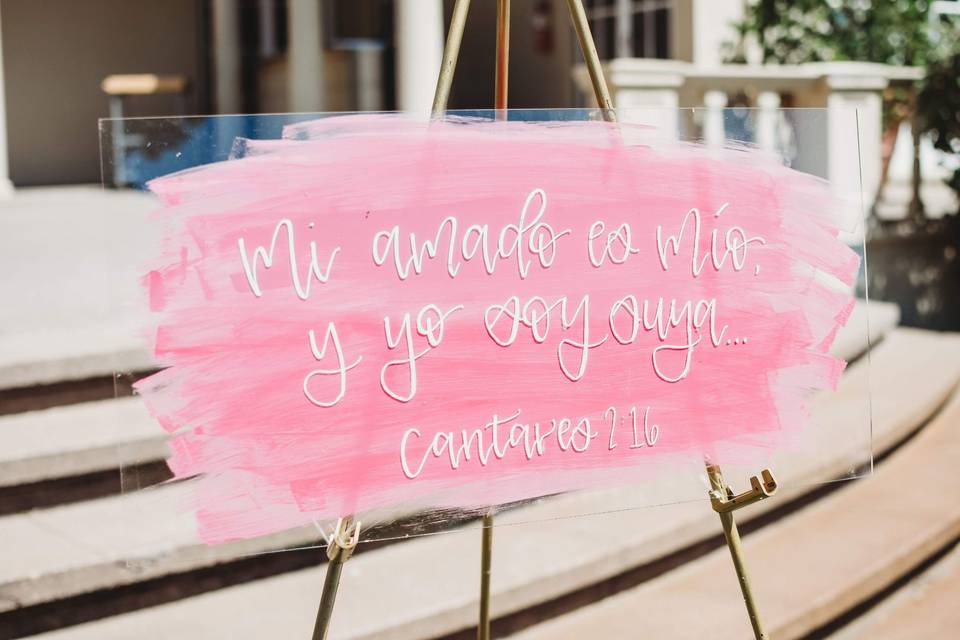 Mi amado es mío,
y yo soy suya...
Cantares 2:16